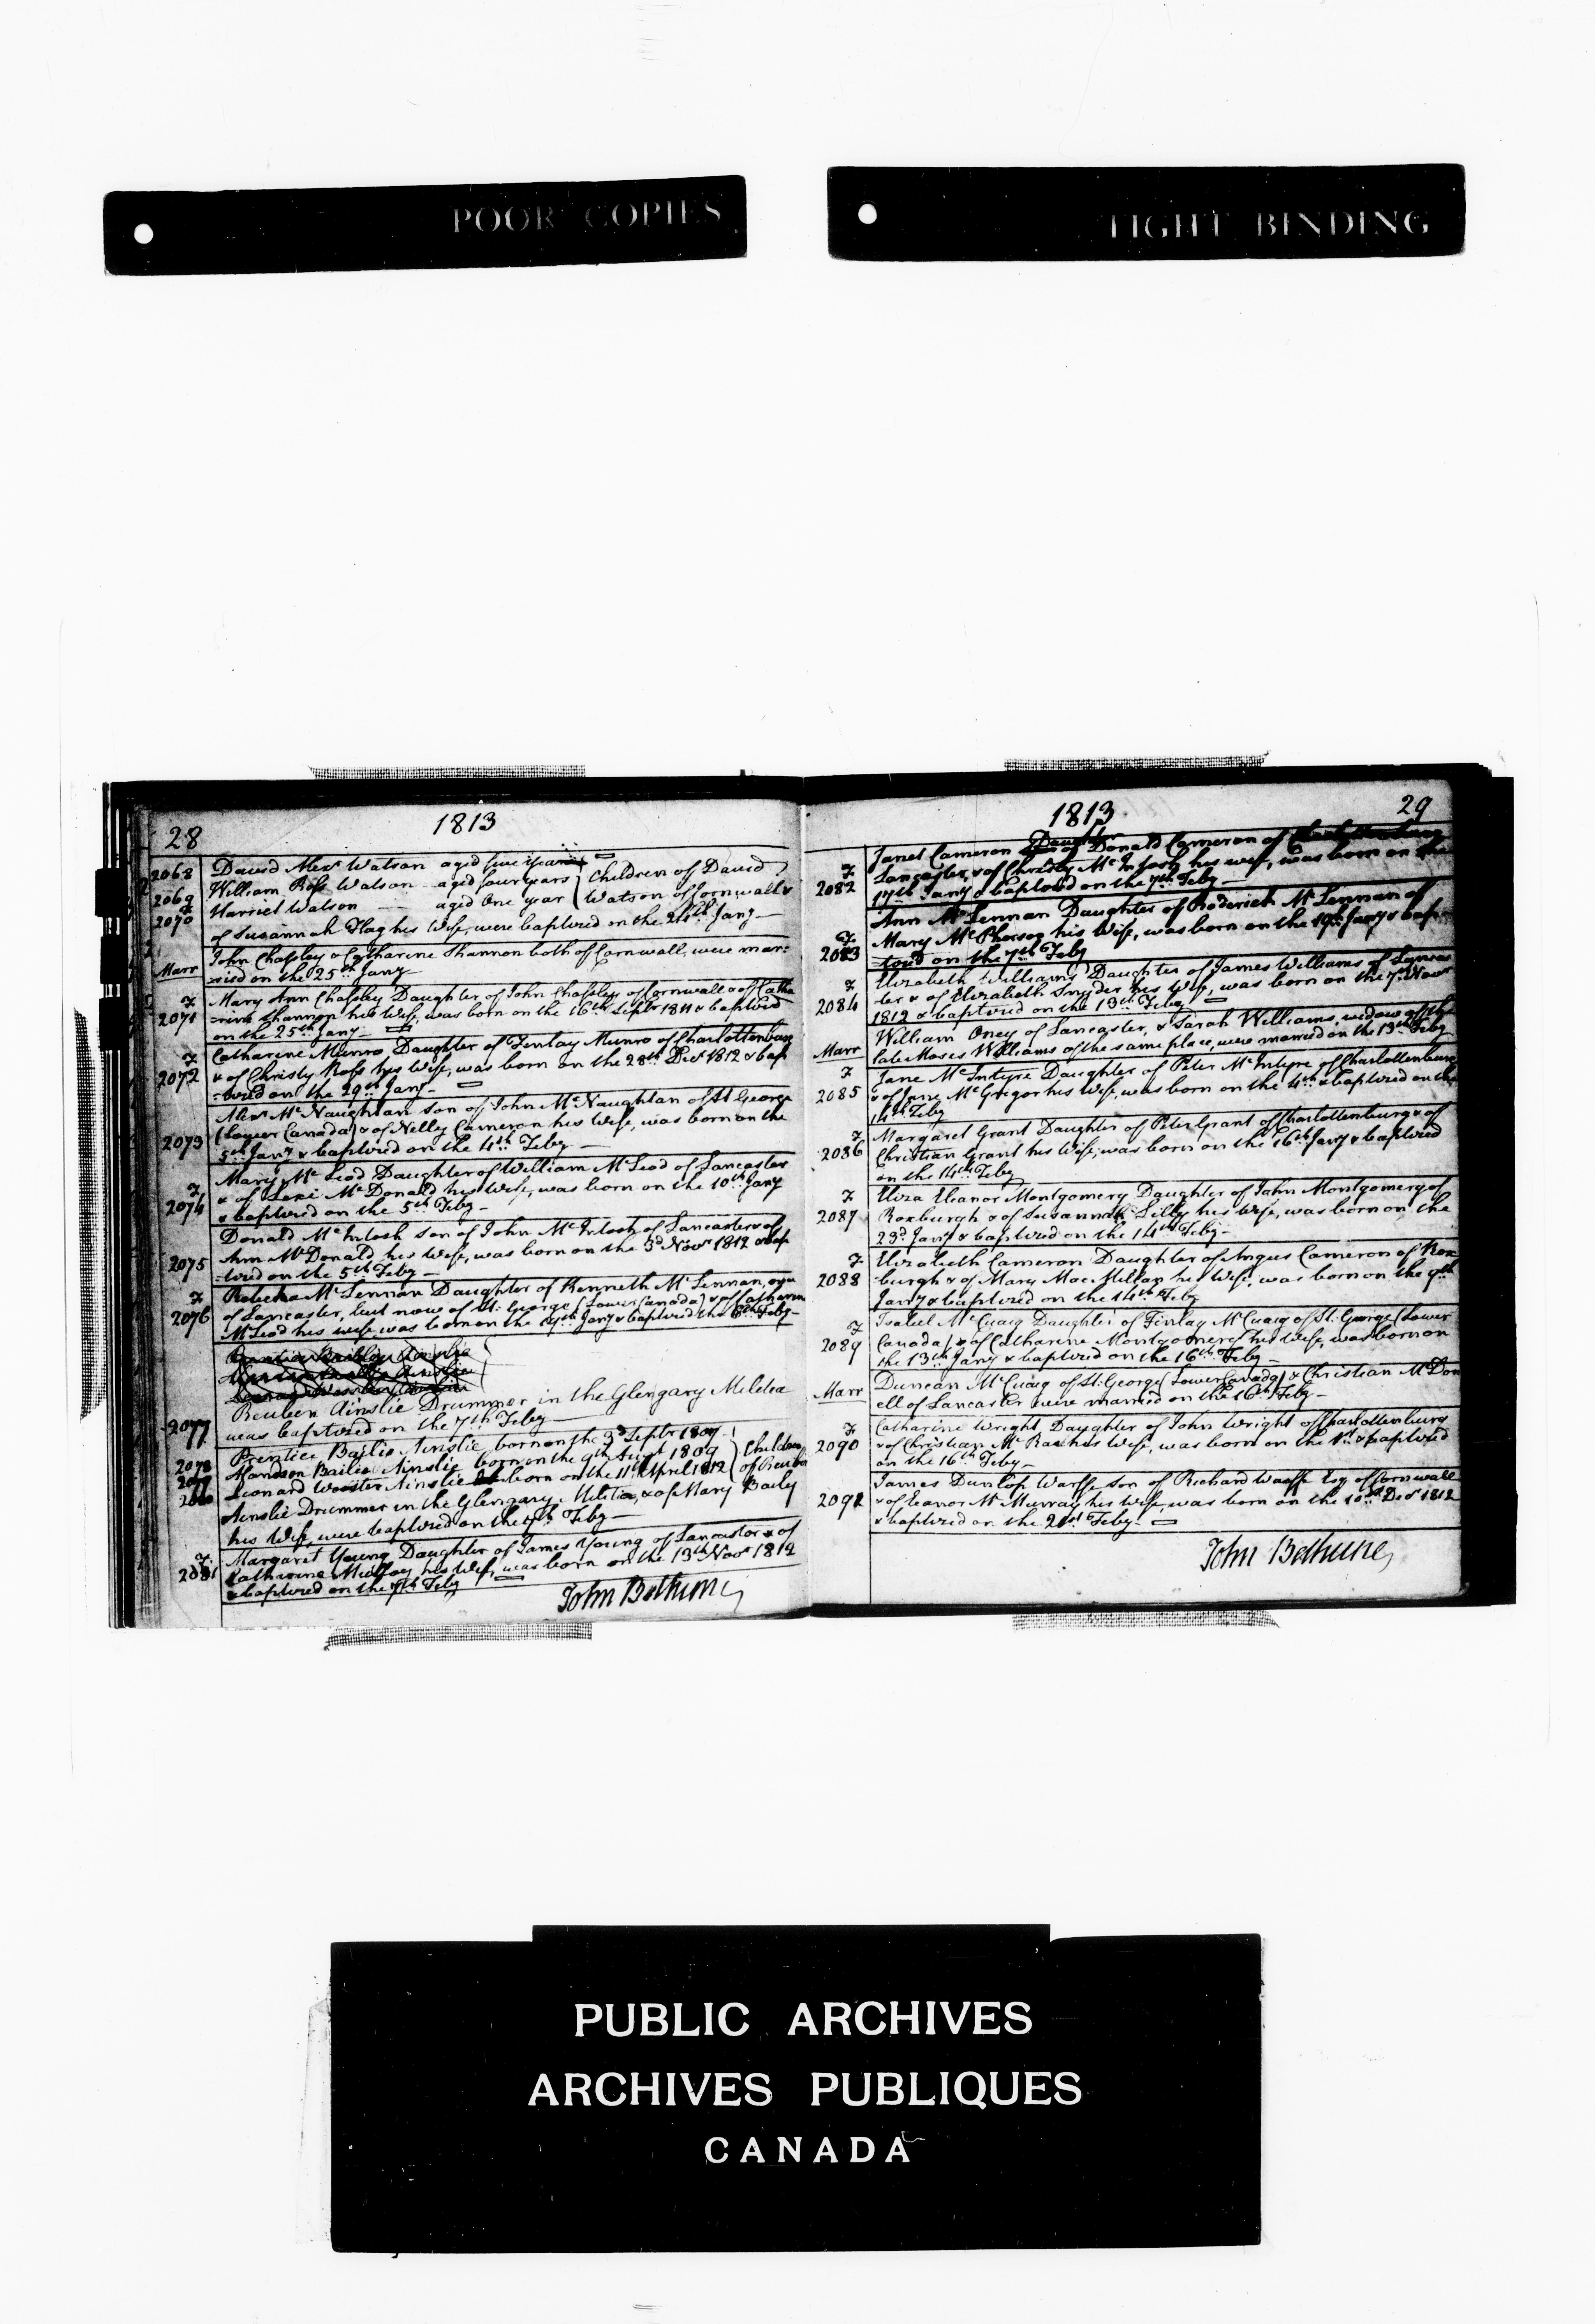 POOR COPIES
TIGHT BINDING
28
1813
2068 David Alexr Watson aged five years
2069 William Ross Watson aged four years Children of David
2070 Harriet Watson aged One year Watson of Cornwall &
of Susannah Flag his Wife, were baptized on the 24th Jany
John Chessley & Catharine Shannon both of Cornwall, were mar=
Marr ried on the 25th Jany
F Mary Ann Chessley Daughter of John Chessley of Cornwall & of Catha
2071 =rine Shannon his Wife, was born on the 16th Septr 1811 & baptized
on the 25th Jany
F Catharine Munro, Daughter of Finlay Munro of Charlottenburg
2072 & of Christy Ross his Wife, was born on the 28th Decr 1812 & bap
=tized on the 29th Jany
Alexr McNaughtan son of John McNaughtan of St George
2073 (Lower Canada) & of Nelly Cameron his Wife, was born on the
5th Jany & baptized on the 4th Feby
Mary McLeod Daughter of William McLeod of Lancaster
F & of McDonald his Wife, was born on the 10th Jany
2074 & baptized on the 5th Feby
Donald McIntosh son of John McIntosh of Lancaster & of
2075 Ann McDonald his Wife, was born on the 3d Novr 1812 & bap
=tized on the 5th Feby
F Rebecka McLennan Daughter of Kenneth McLennan,
2076 of Lancaster, but now of St. George (Lower Canada) & of Catharine
McLeod his wife was born on the Jany & baptized the Feby
Reuben Ainslie Drummer in the Glengary Militia
2077 was baptized on the 7th Feby
2078 Prentice Bailie Ainslie born on the 3d Septr 1807
Bailie Ainslie born on the 9th Augt 1809 Children
Leonard Wooster Ainslie born on the 11th April 1812 of Reuben
Ainslie Drummer in the Glengary Militia, & of Mary Baily
his Wife, were baptized on the 7th Feby
F Margaret Young Daughter of James Young of Lancaster & of
2081 Catharine his Wife, was born on the 13th Novr 1812
& baptized on the 7th Feby
John Bethune
1813
29
Janet Cameron Daughter of Donald Cameron of
F Lancaster, & of Christy McIntosh his wife, was born on the
2082 17th Jany & baptized on the 7th Feby
Ann McLennan Daughter of Roderick McLennan of
F Mary McPherson his Wife, was born on the 19th Jany & bap=
2083 =tized on the 7th Feby
F Elizabeth Williams Daughter of James Williams of Lancas
2084 ter & of Elizabeth Snyder his Wife, was born on the 7th Novr
1812 & baptized on the 13th Feby
William Oney of Lancaster, & Sarah Williams, widow of the
Marr late Moses Williams of the same place, were married on the 13th Feby
F Jane McIntyre Daughter of Peter McIntyre of Charlottenburg
2085 & of Jane McGregor his Wife, was born on the 4th & baptized on the
14th Feby
F Margaret Grant Daughter of Peter Grant of Charlottenburg & of
2086 Christian Grant his Wife, was born on the 16th Jany & baptized
on the 14th Feby
F Eliza Eleanor Montgomery Daughter of John Montgomery of
2087 Roxburgh & of Susannah Lilly his Wife, was born on the
23d Jany & baptized on the 14th Feby
F Elizabeth Cameron Daughter of Angus Cameron of Rox
2088 burgh & of Mary MacMillan his Wife, was born on the 9th
Jany & baptized on the 14th Feby
F Isabel McCuaig Daughter of Finlay McCuaig of St. George (Lower
2089 Canada) & of Catharine Montgomery his Wife, was born on
the 13th Jany & baptized on the 16th Feby
Marr Duncan McCuaig of St. George (Lower Canada) & Christian McDon
ell of Lancaster were married on the 16th Feby
F Catharine Wright Daughter of John Wright of Charlottenburg
2090 & of Christian McRae his Wife, was born on the 1st & baptized
on the 16th Feby
James Dunlop Warffe son of Richard Warffe Esq of Cornwall
2091 & of Eleanor McMurray his Wife, was born on the 10th Decr 1812
& baptized on the 21st Feby
John Bethune
PUBLIC ARCHIVES
ARCHIVES PUBLIQUES
CANADA